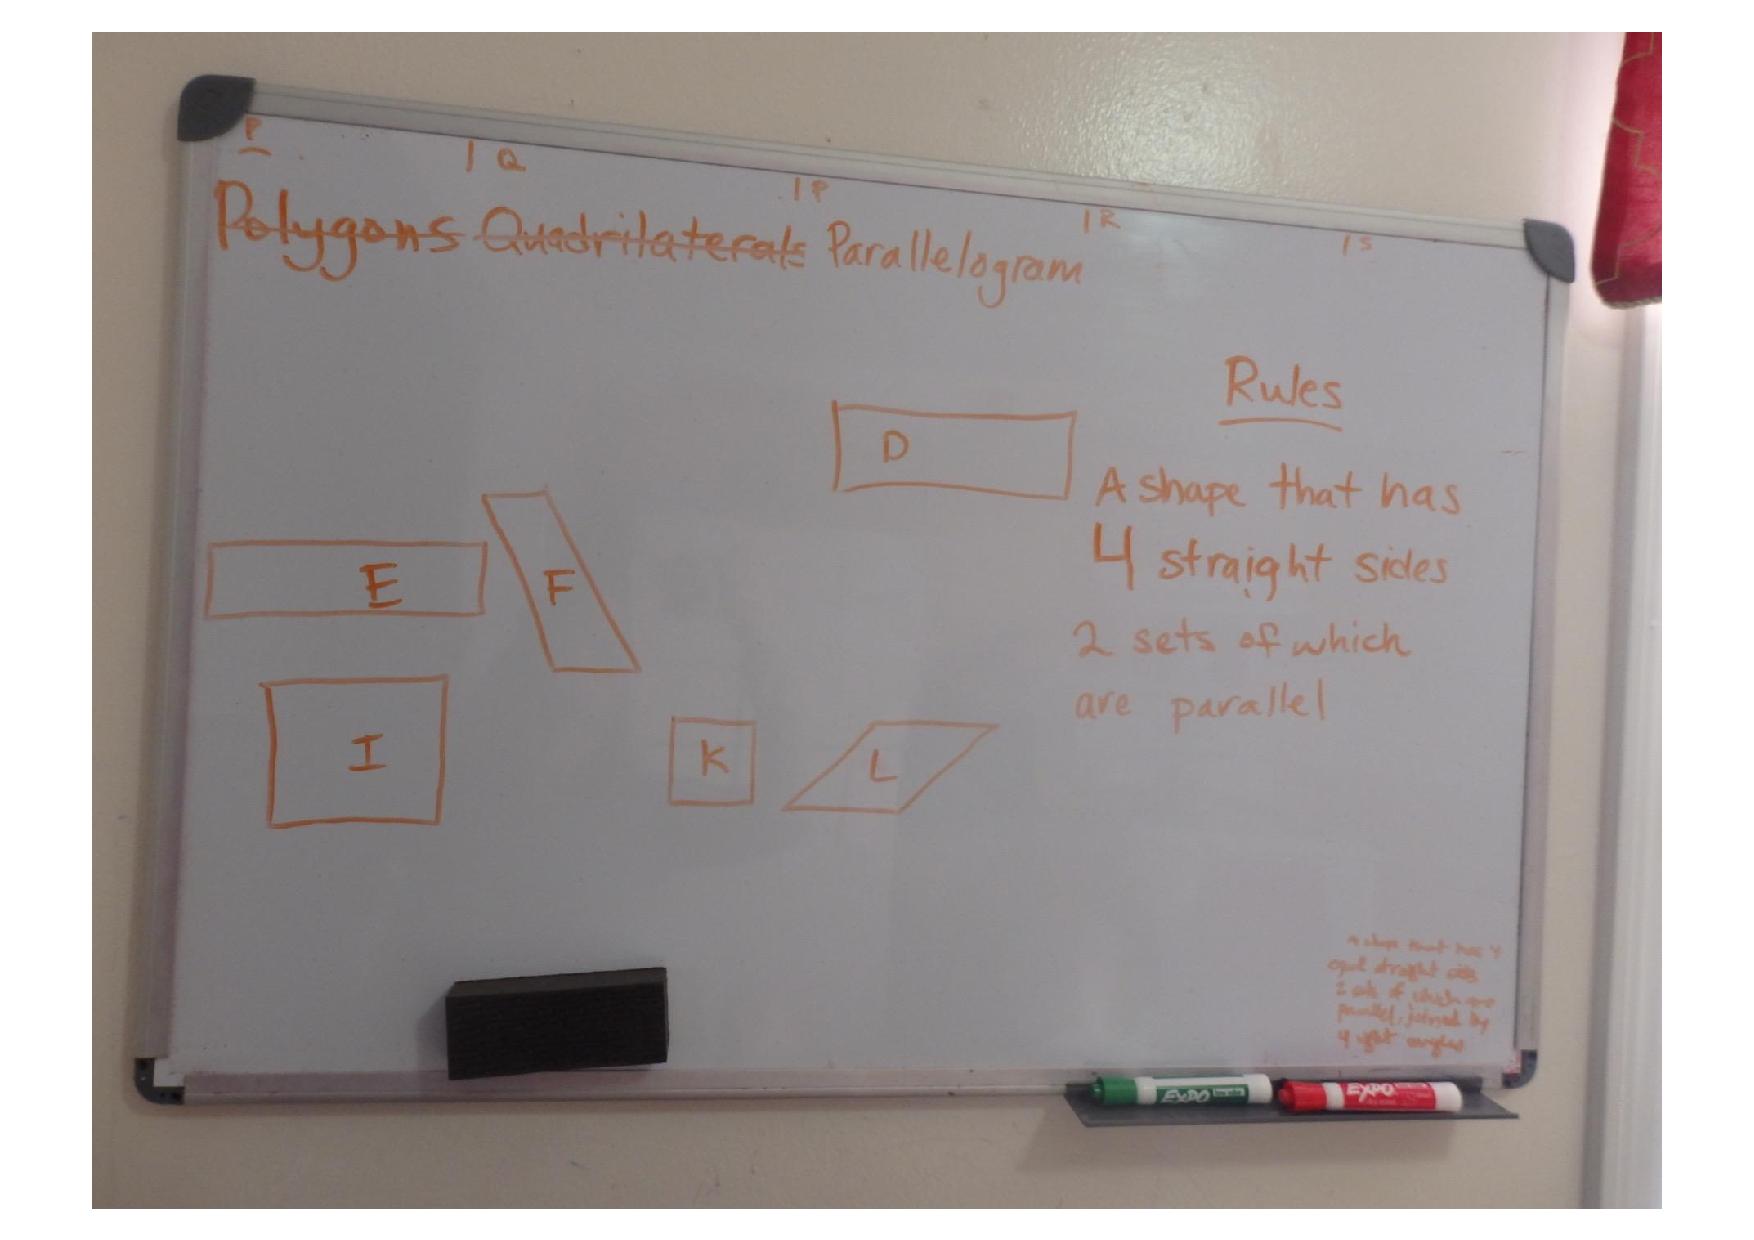 P | Q | P | R | S
Polygons Quadrilaterals Parallelogram
Rules
D
A shape that has
4 straight sides
E F
2 sets of which
are parallel
I K L
A shape that has 4
equal straight sides
2 sets of which are
parallel, joined by
4 right angles
EXPO EXPO